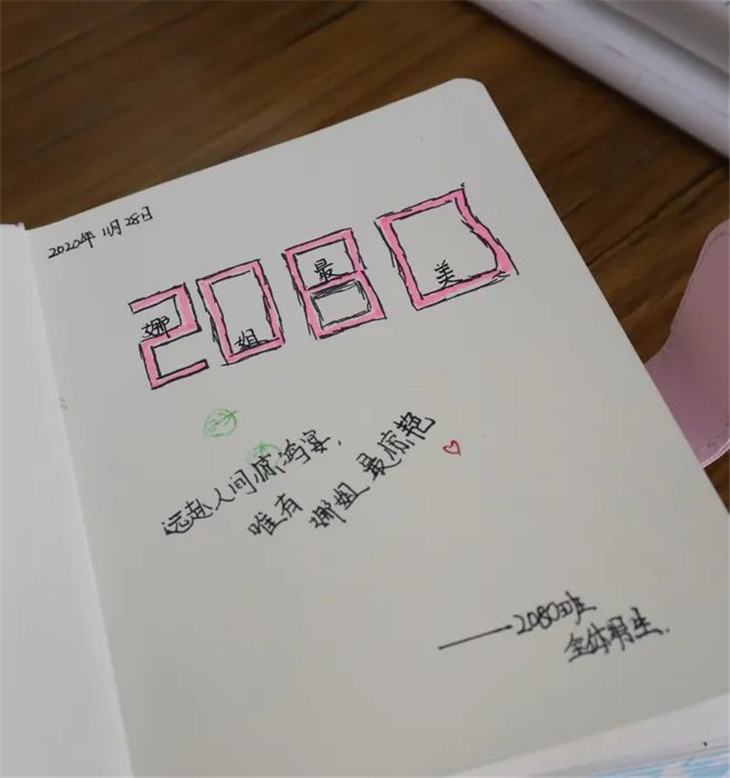 2020年 11月28日
2080
娜姐最美
远赴人间惊鸿宴,
唯有 娜姐 最惊艳
——2080班
全体男生.